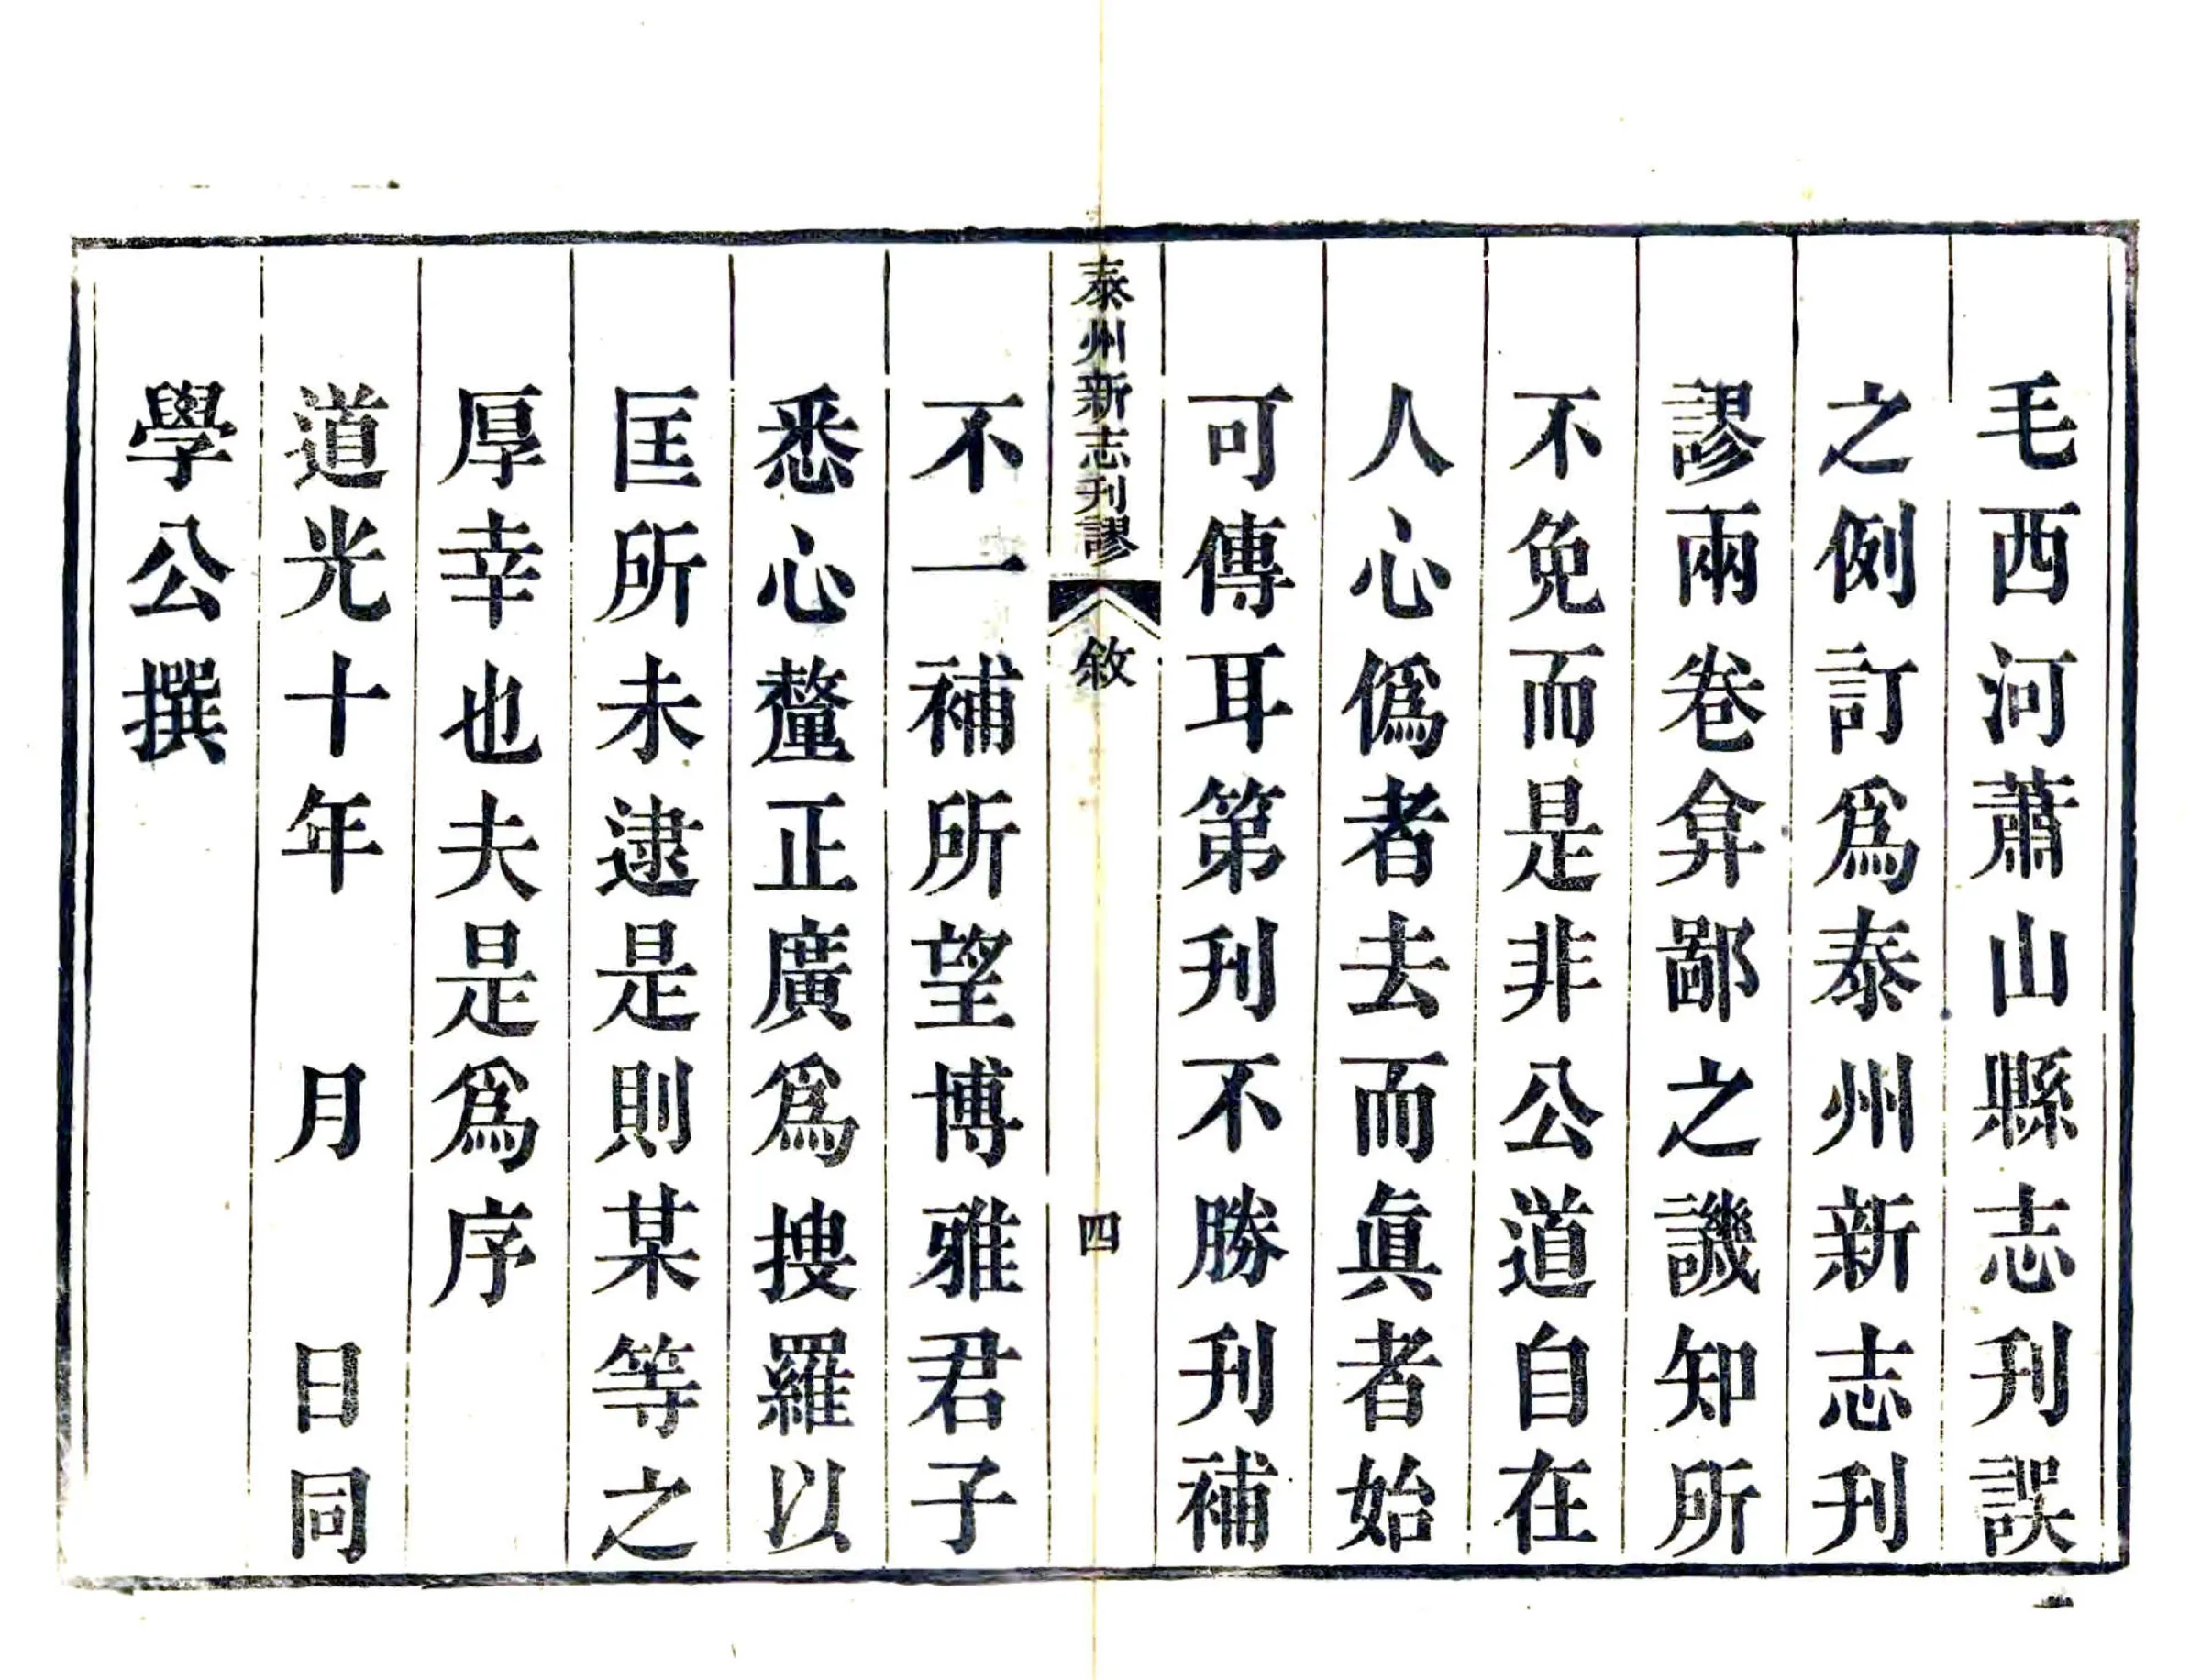 毛西河蕭山縣志刊誤
之例訂爲泰州新志刊
謬兩卷弇鄙之譏知所
不免而是非公道自在
人心僞者去而眞者始
可傳耳第刊不勝刊補
泰州新志刊謬 敘 四
不一補所望博雅君子
悉心釐正廣爲搜羅以
匡所未逮是則某等之
厚幸也夫是爲序
道光十年 月 日同
學公撰